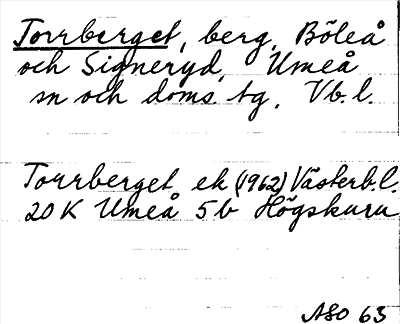 Torrberget, berg, Böleå
och Signeryd, Umeå
sn och doms. tg, Vb. l.
Torrberget ek (1962) Västerb. l.
20 K Umeå 5b Högskuru
ASO 63